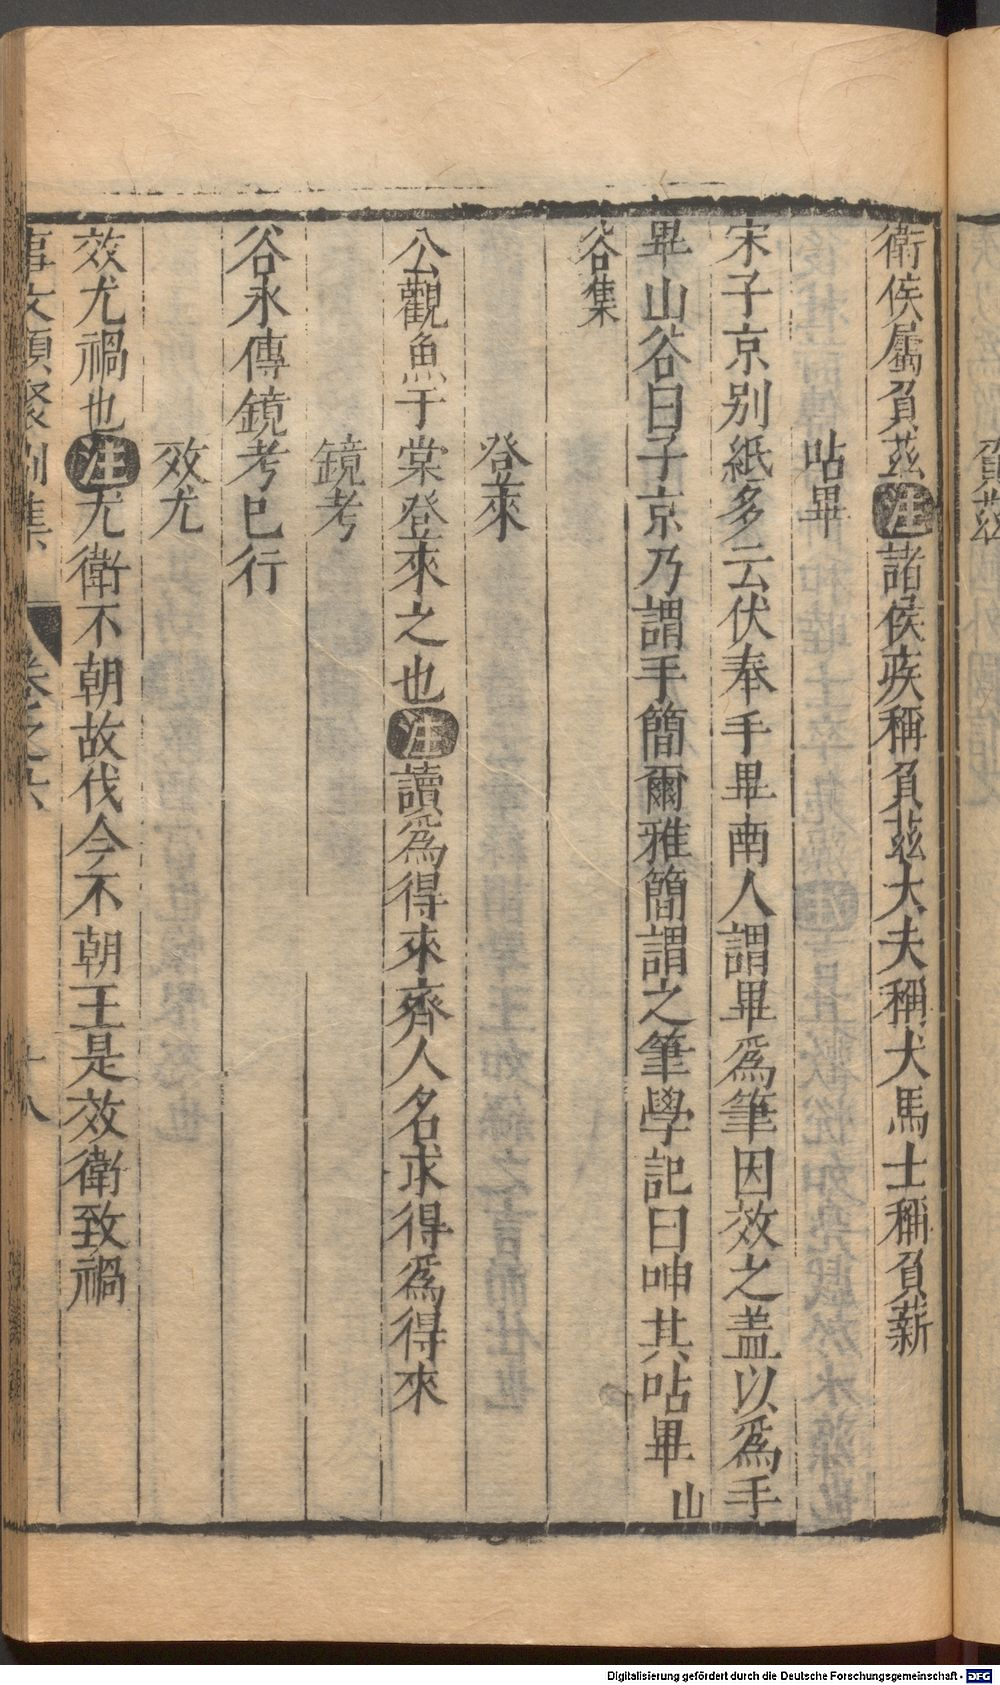 負茲
衛侯屬負茲注諸侯疾稱負茲大夫稱犬馬士稱負薪
呫畢
宋子京别紙多云伏奉手畢南人謂畢爲筆因效之盖以爲手
畢山谷曰子京乃謂手簡爾雅簡謂之筆學記曰呻其呫畢山
谷集
登來
公觀魚于棠登來之也注讀爲得來齊人名求得爲得來
鏡考
谷永傳鏡考已行
效尤
效尤禍也注尤衛不朝故伐今不朝王是效衛致禍
事文類聚別集 卷之六 十八
Digitalisierung gefördert durch die Deutsche Forschungsgemeinschaft - DFG